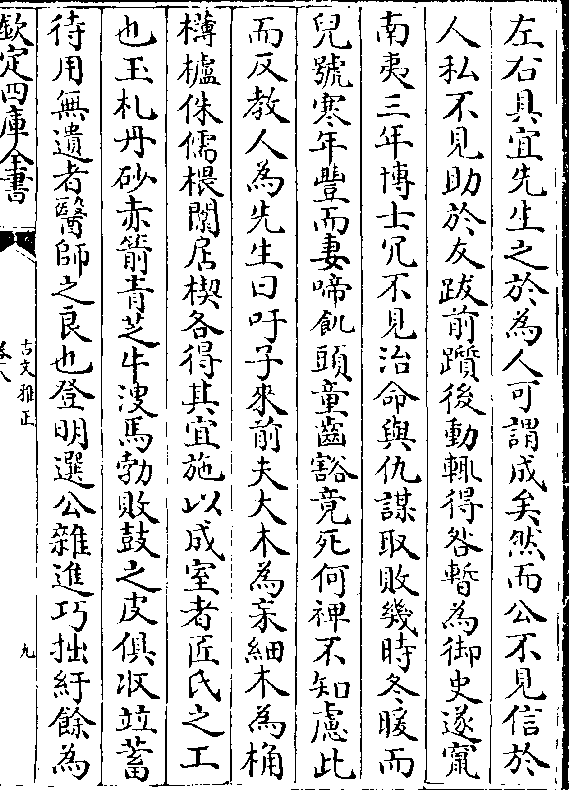 左右具宜先生之於為人可謂成矣然而公不見信於
人私不見助於友跋前躓後動輒得咎暫為御史遂竄
南夷三年博士冗不見治命與仇謀取敗幾時冬暖而
兒號寒年豐而妻啼飢頭童齒豁竟死何裨不知慮此
而反教人為先生曰吁子來前夫大木為杗細木為桷
欂櫨侏儒椳闑扂楔各得其宜施以成室者匠氏之工
也玉札丹砂赤箭青芝牛溲馬勃敗鼓之皮俱收竝蓄
待用無遺者醫師之良也登明選公雜進巧拙紆餘為
欽定四庫全書
古文雅正
卷八
九